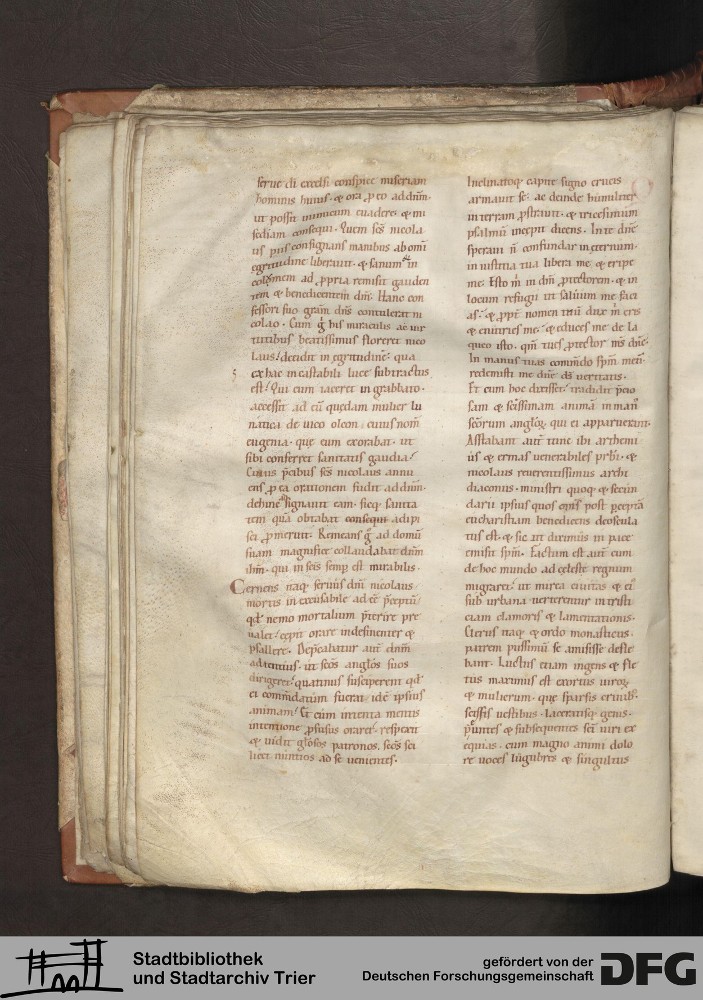 serue di excelsi conspice miseriam
hominis huius · & ora ꝓ eo ad dnm̄ ·
ut possit inimicum euadere · & me
sediam consequi · Quem scs̄ nicola
us pius consignans manibus ab omi
egritudine liberauit · & sanum in
ad ꝓpria remisit gauden
tem & benedicentem dnm̄ · Hanc con
fessori suo gram̄ dns̄ contulerat ni
colao · Cum g̊ his miraculis ac uir
tutibus beatissimus floreret nico
laus / decidit in egritudinē · qua
ex hac instabili luce subtractus
est / Qui cum iaceret in grabbato ·
accessit ad eū quedam mulier lu
natica de uico oleon cuius nom̄
eugenia · que eum exorabat · ut
sibi conferret sanitatis gaudia /
Cuius p̄cibus scs̄ nicolaus annu
ens ꝓ ea orationem fudit ad dnm̄ ·
dehinc signauit eam · sicq; sanita
tem qua obtabat consequi adipi
sci ꝓmeruit · Remeans g̊ ad domū
suam magnifice collaudabat dnm̄
ihm̄ · qui in scis̄ semp̱ est mirabilis ·
Cernens naq; seruus dnī nicolaus
mortis inexcusabile ad eē p̄ceptū
qd̄ nemo mortalium p̄terire pre
ualet / cepit orare indesinenter &
psallere · Dep̄cabatur aut̄ dnm̄
adtentius · ut scōs anglōs suos
dirigeret / quatinus susciperent qd̄
ei commdatum fuerat / idē ipsius
animam / Et cum intenta mentis
intentione ꝓfusus oraret · respexit
& uidit glosos patronos · scōs sci
licet nuntios ad se uenientes ·
Inclinatoq; capite signo crucis
armauit se · ac deinde humiliter
in terram ꝓstrauit · & tricesimum
psalmū incepit dicens · In te dnē
speraui n̄ confundar in eternum ·
in iustitia tua libera me & eripe
me · Esto m̄ in dm̄ ꝓtectorem · & in
locum refugii ut saluum me faci
as · & ꝓpt̄ nomen tuū dux m̄ eris
& enutries me · & educes me de la
queo isto · qm̄ tu es ꝓtector ms̄ dnē ·
In manus tuas commdo spm̄ meū ·
redemisti me dnē ds̄ ueritatis ·
Et cum hoc dixisset / tradidit p̄cio
sam & scissimam animā in man̄
scōrum anglōꝝ qui ei apparuerant ·
Astabant aut̄ tunc ibi arthemi
us & ermas uenerabiles prb̄i · &
nicolaus reuerentissimus archi
diaconus · ministri quoq; & secun
darii ipsius quos oms̄ post p̱ceptā
eucharistiam benedicens deoscula
tus est · & sic ut diximus in pace
emisit spm̄ · Factum est aut̄ cum
de hoc mundo ad celeste regnum
migraret / ut mirea ciuitas & ei
suburbana uerterentur in tristi
ciam clamoris & lamentationis ·
Clerus naq; & ordo monasticus ·
patrem piissimū se amisisse defle
bant · Luctus etiam ingens & fle
tus maximus est exortus uiroꝝ
& mulierum · que sparsis crinib; ·
scissis uestibus · laceratisq; genis ·
p̄euntes & subsequentes sci uiri ex
equias · cum magno animi dolo
re uoces lugubres & singultus
Stadtbibliothek
und Stadtarchiv Trier
gefördert von der
Deutschen Forschungsgemeinschaft
DFG